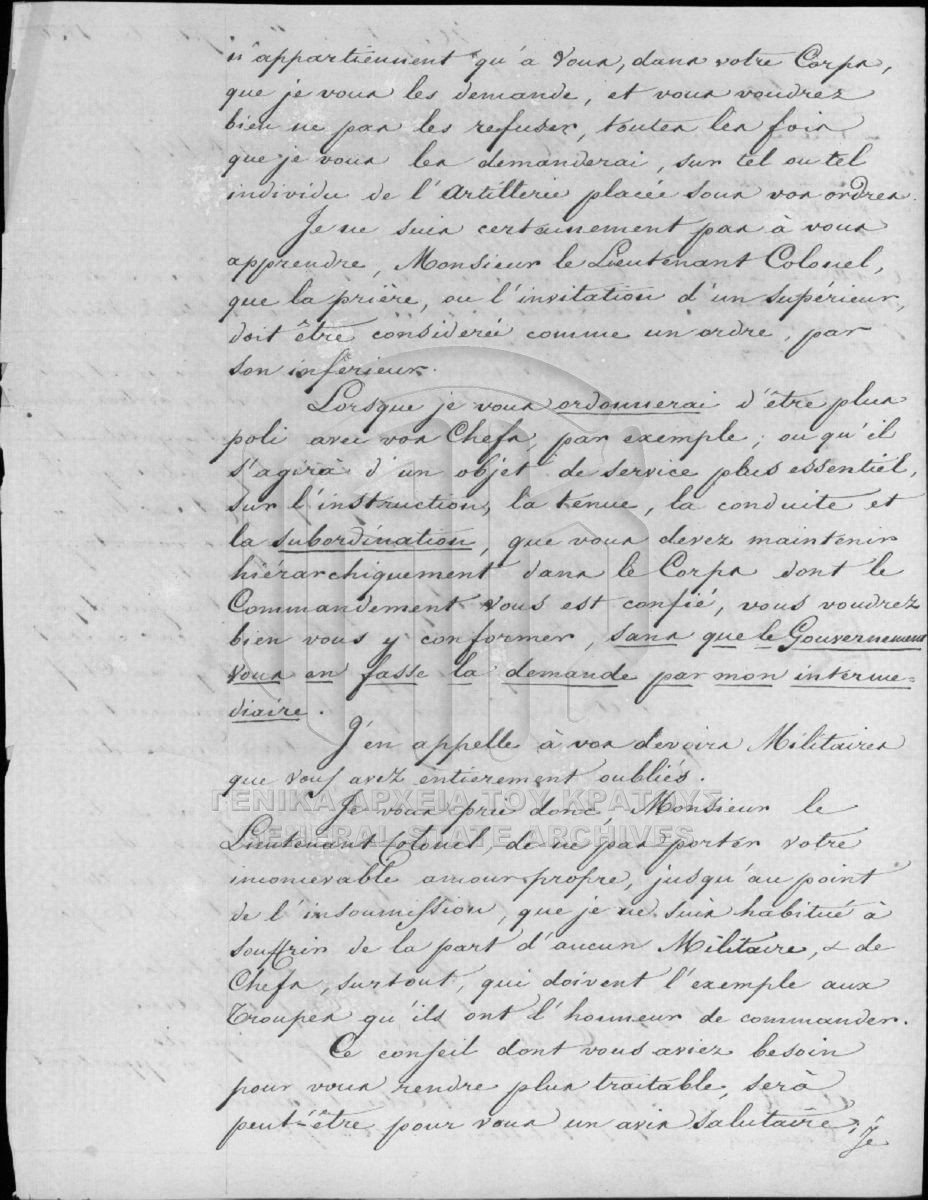 n'appartiennent qu'à Vous, dans votre Corps,
que je vous les demande, et vous voudrez
bien ne pas les refuser, toutes les fois
que je vous les demanderai, sur tel ou tel
individu de l'Artillerie placée sous vos ordres.
Je ne suis certainement pas à vous
apprendre, Monsieur le Lieutenant Colonel,
que la prière, ou l'invitation d'un supérieur,
doit être considereé comme un ordre, par
son inférieur.
Lorsque je vous ordonnerai d'être plus
poli avec vos Chefs, par exemple; ou qu'il
s'agirà d'un objet de service plus essentiel,
sur l'instruction, la ténue, la conduite et
la subordination, que vous devez maintenir
hiérarchiquement dans le Corps dont le
Commandement vous est confié, vous voudrez
bien vous y conformer, sans que le Gouvernement
vous en fasse la demande par mon interme=
diaire.
J'en appelle à vos devoirs Militaires
que vous avez entierement oubliés.
ΓΕΝΙΚΑ ΑΡΧΕΙΑ ΤΟΥ ΚΡΑΤΟΥΣ
Je vous prie donc, Monsieur le
GENERAL STATE ARCHIVES
Lieutenant Colonel, de ne pas porter votre
inconcevable amour propre, jusqu'au point
de l'insoumission, que je ne suis habitué à
souffrir de la part d'aucun Militaire, & de
Chefs, surtout, qui doivent l'exemple aux
Troupes qu'ils ont l'honneur de commander.
Ce conseil dont vous aviez besoin
pour vous rendre plus traitable, serà
peut-être pour vous un avis salutaire;
Je